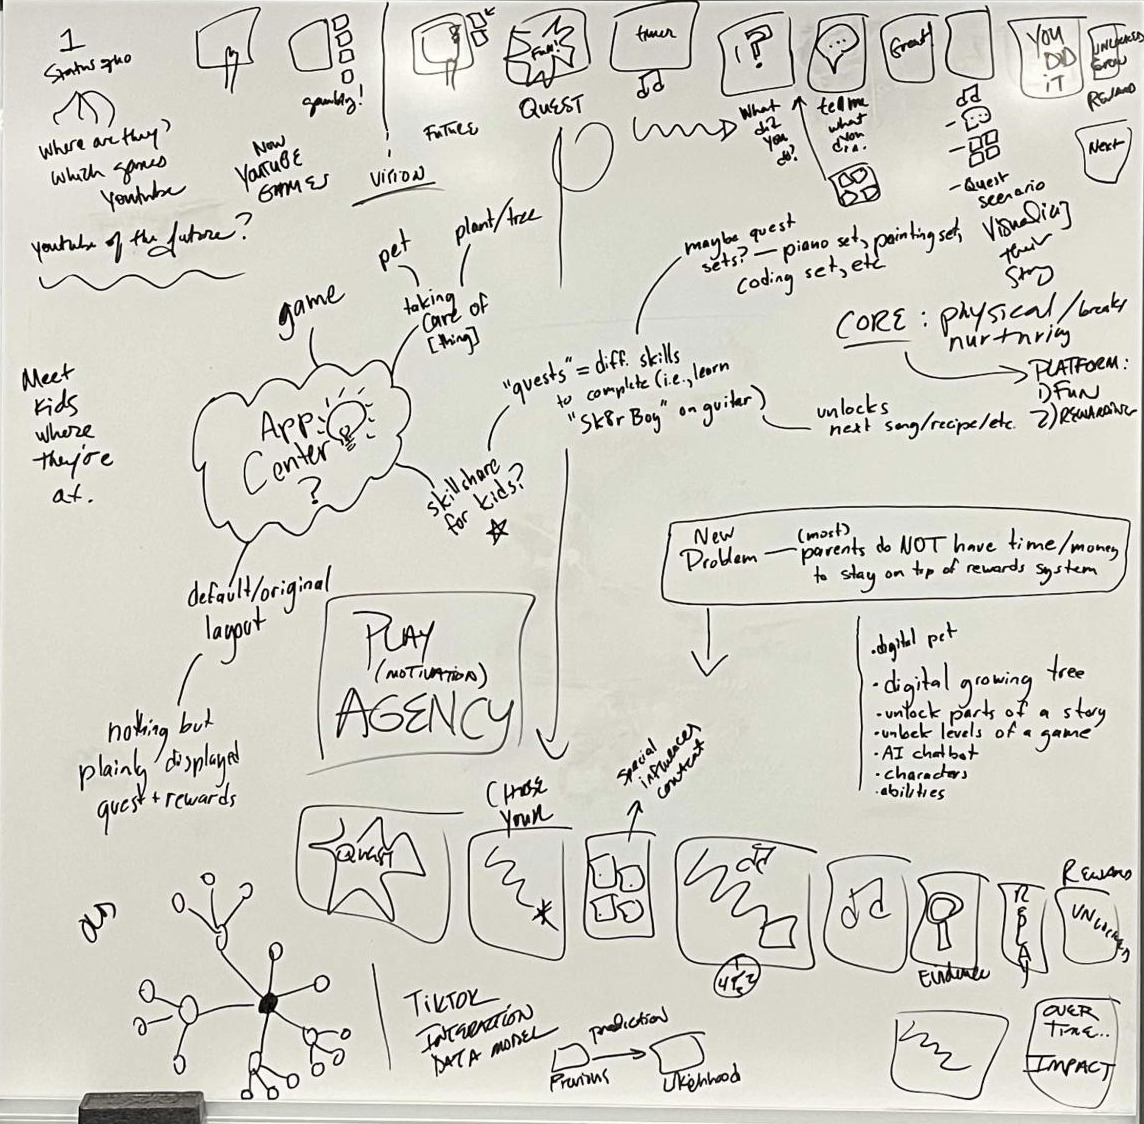 1
Status quo
Where are they?
Which games
Youtube
Now
YOUTUBE
GAMES
gambly!
VISION
FUTURE
Fun!
QUEST
timer
?
What
did
you
do?
...
tell me
what
you
did.
Great
YOU
DID
iT
UNLOCKED
REWARD
Next
- Quest
scenario
Visualizing
their
Story
youtube of the future?
Meet
kids
where
they're
at.
game
pet
plant/tree
taking
care of
[thing]
App
Center
?
skillshare
for kids?
"quests" = diff. skills
to complete (i.e., learn
"Sk8r Boy" on guitar)
maybe quest
sets? — piano set, painting set,
coding set, etc
unlocks
next song/recipe/etc.
CORE : physical/breaks
nurturing
PLATFORM:
1) FUN
2) REWARDING
default/original
layout
nothing but
plainly displayed
quest + rewards
PLAY
(MOTIVATION)
AGENCY
New
Problem — (most)
parents do NOT have time/money
to stay on top of rewards system
• digital pet
• digital growing tree
• unlock parts of a story
• unlock levels of a game
• AI chatbot
• characters
• abilities
CHOOSE
YOUR
special
influencers
content
QUEST
Evidence
REPLAY
REWARD
UNLOCKED
TIKTOK
INTERACTION
DATA MODEL
prediction
Previous
Likelihood
OVER
TIME...
IMPACT